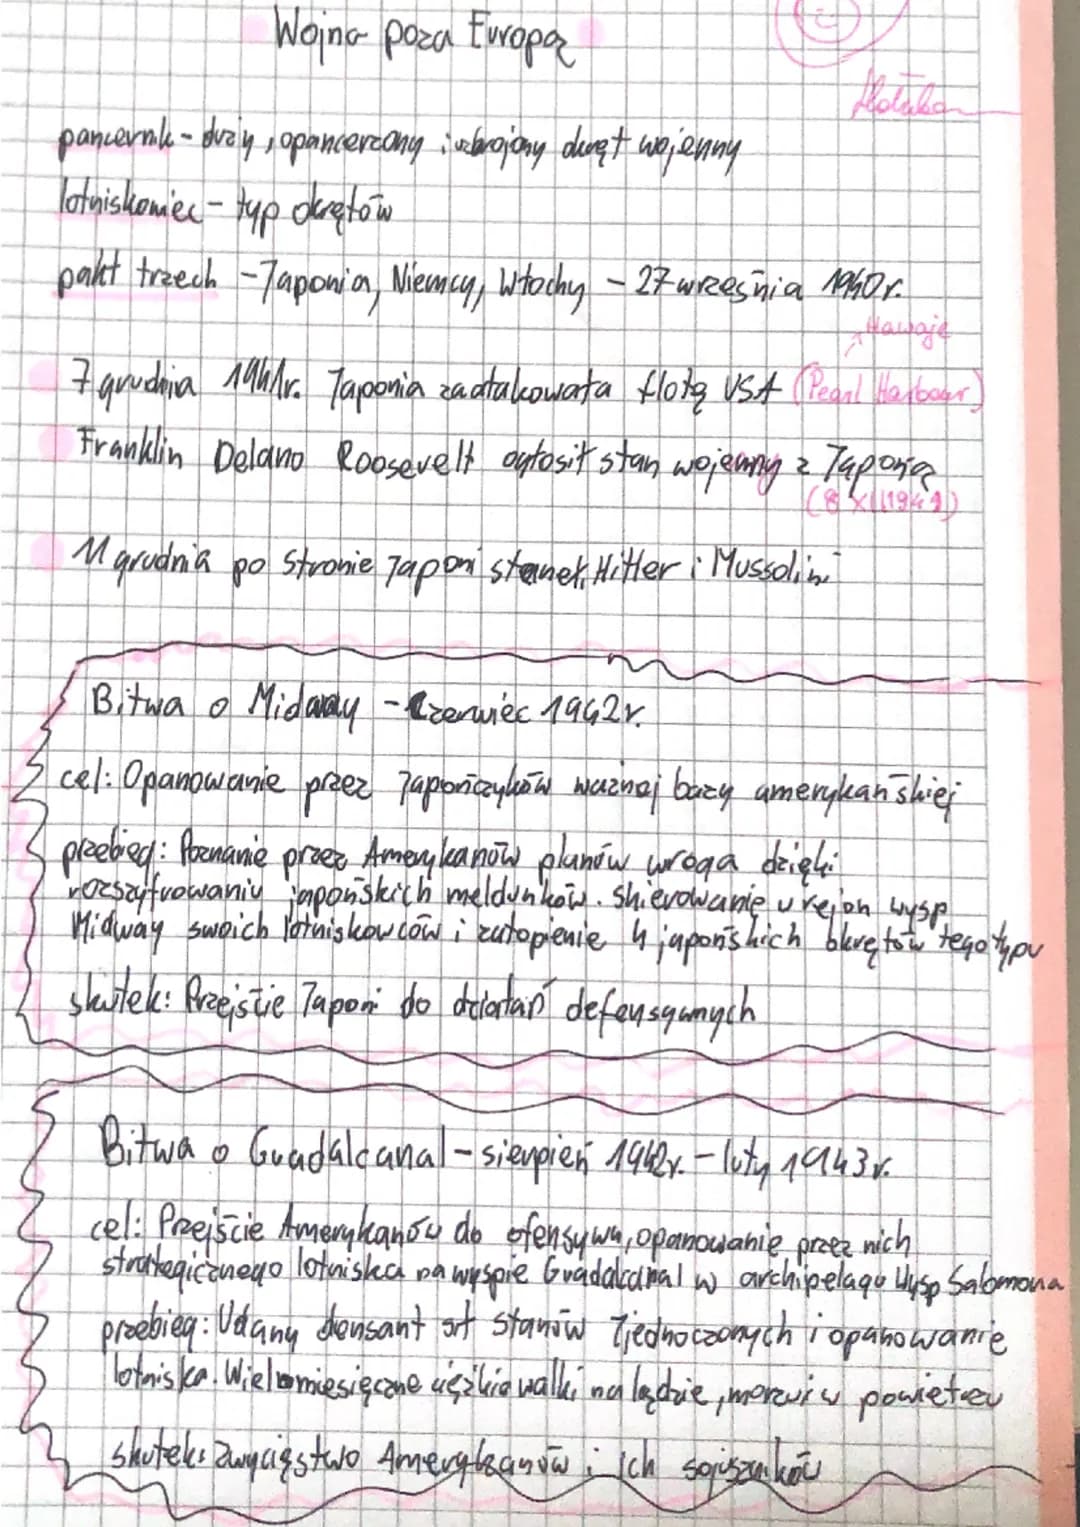 Wojna poza Europą
pancernik - duży, opancerzony i uzbrojony okręt wojenny
lotniskowiec - typ okrętów
pakt trzech - Japonia, Niemcy, Włochy - 27 września 1940r.
Hawaje
7 grudnia 1941r. Japonia zaatakowała flotę USA (Pearl Harbour)
Franklin Delano Roosevelt ogłosił stan wojenny z Japonią
(8 XII 1941)
11 grudnia po stronie Japoni stanęł Hitler i Mussolini
Bitwa o Midway - Czerwiec 1942r.
cel: Opanowanie przez Japończyków ważnej bazy amerykańskiej
przebieg: Poznanie przez Amerykanów planów wroga dzięki
rozszyfrowaniu japońskich meldunków. Skierowanie w rejon wysp
Midway swoich lotniskowców i zatopienie 4 japońskich okrętów tego typu
skutek: Przejście Japoni do działań defensywnych
Bitwa o Guadalcanal - sierpień 1942r. - luty 1943r.
cel: Przejście Amerykanów do ofensywy, opanowanie przez nich
strategicznego lotniska na wyspie Guadalcanal w archipelagu Wysp Salomona
przebieg: Udany desant Stanów Zjednoczonych i opanowanie
lotniska. Wielomiesięczne ciężkie walki na lądzie, morzu i w powietrzu
skutek: Zwycięstwo Amerykanów i ich sojuszników